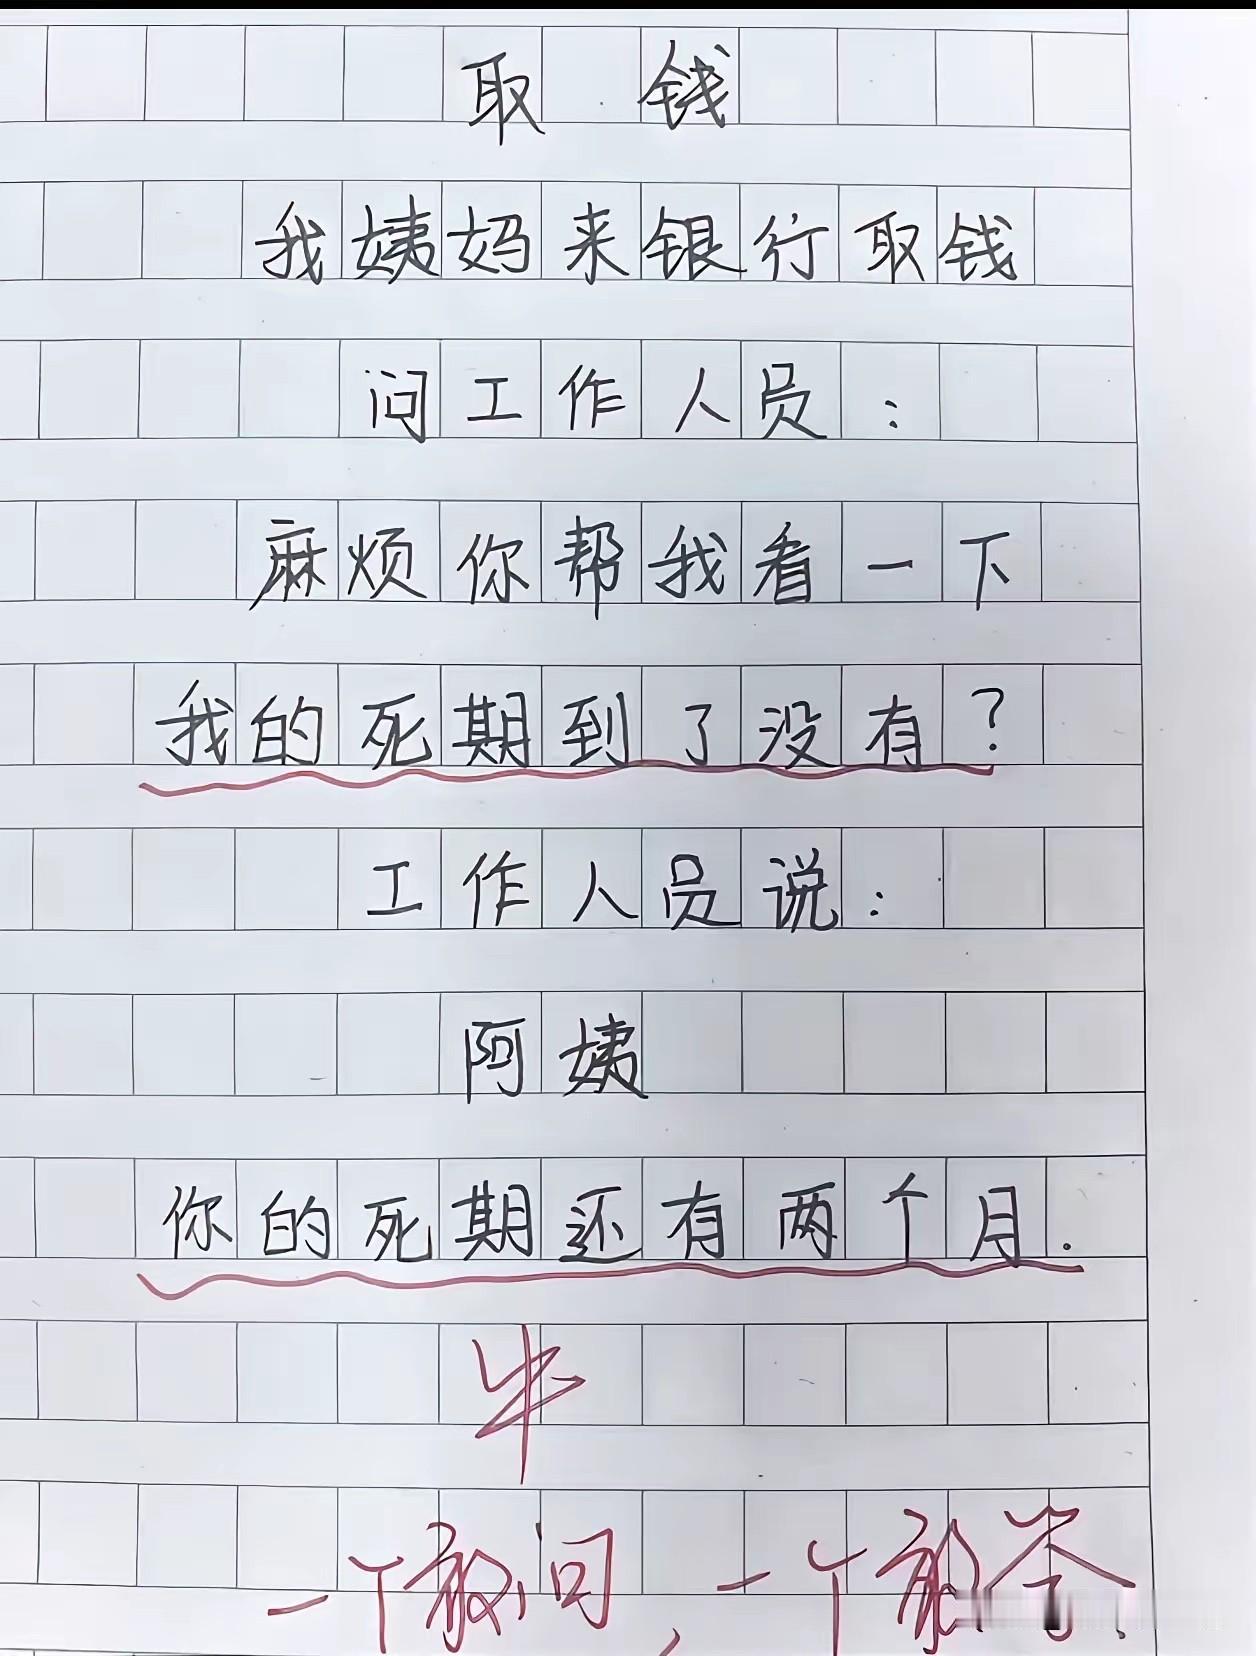 取钱
我姨妈来银行取钱
问工作人员：
麻烦你帮我看一下
我的死期到了没有？
工作人员说：
阿姨
你的死期还有两个月.
牛
一个敢问，一个敢答